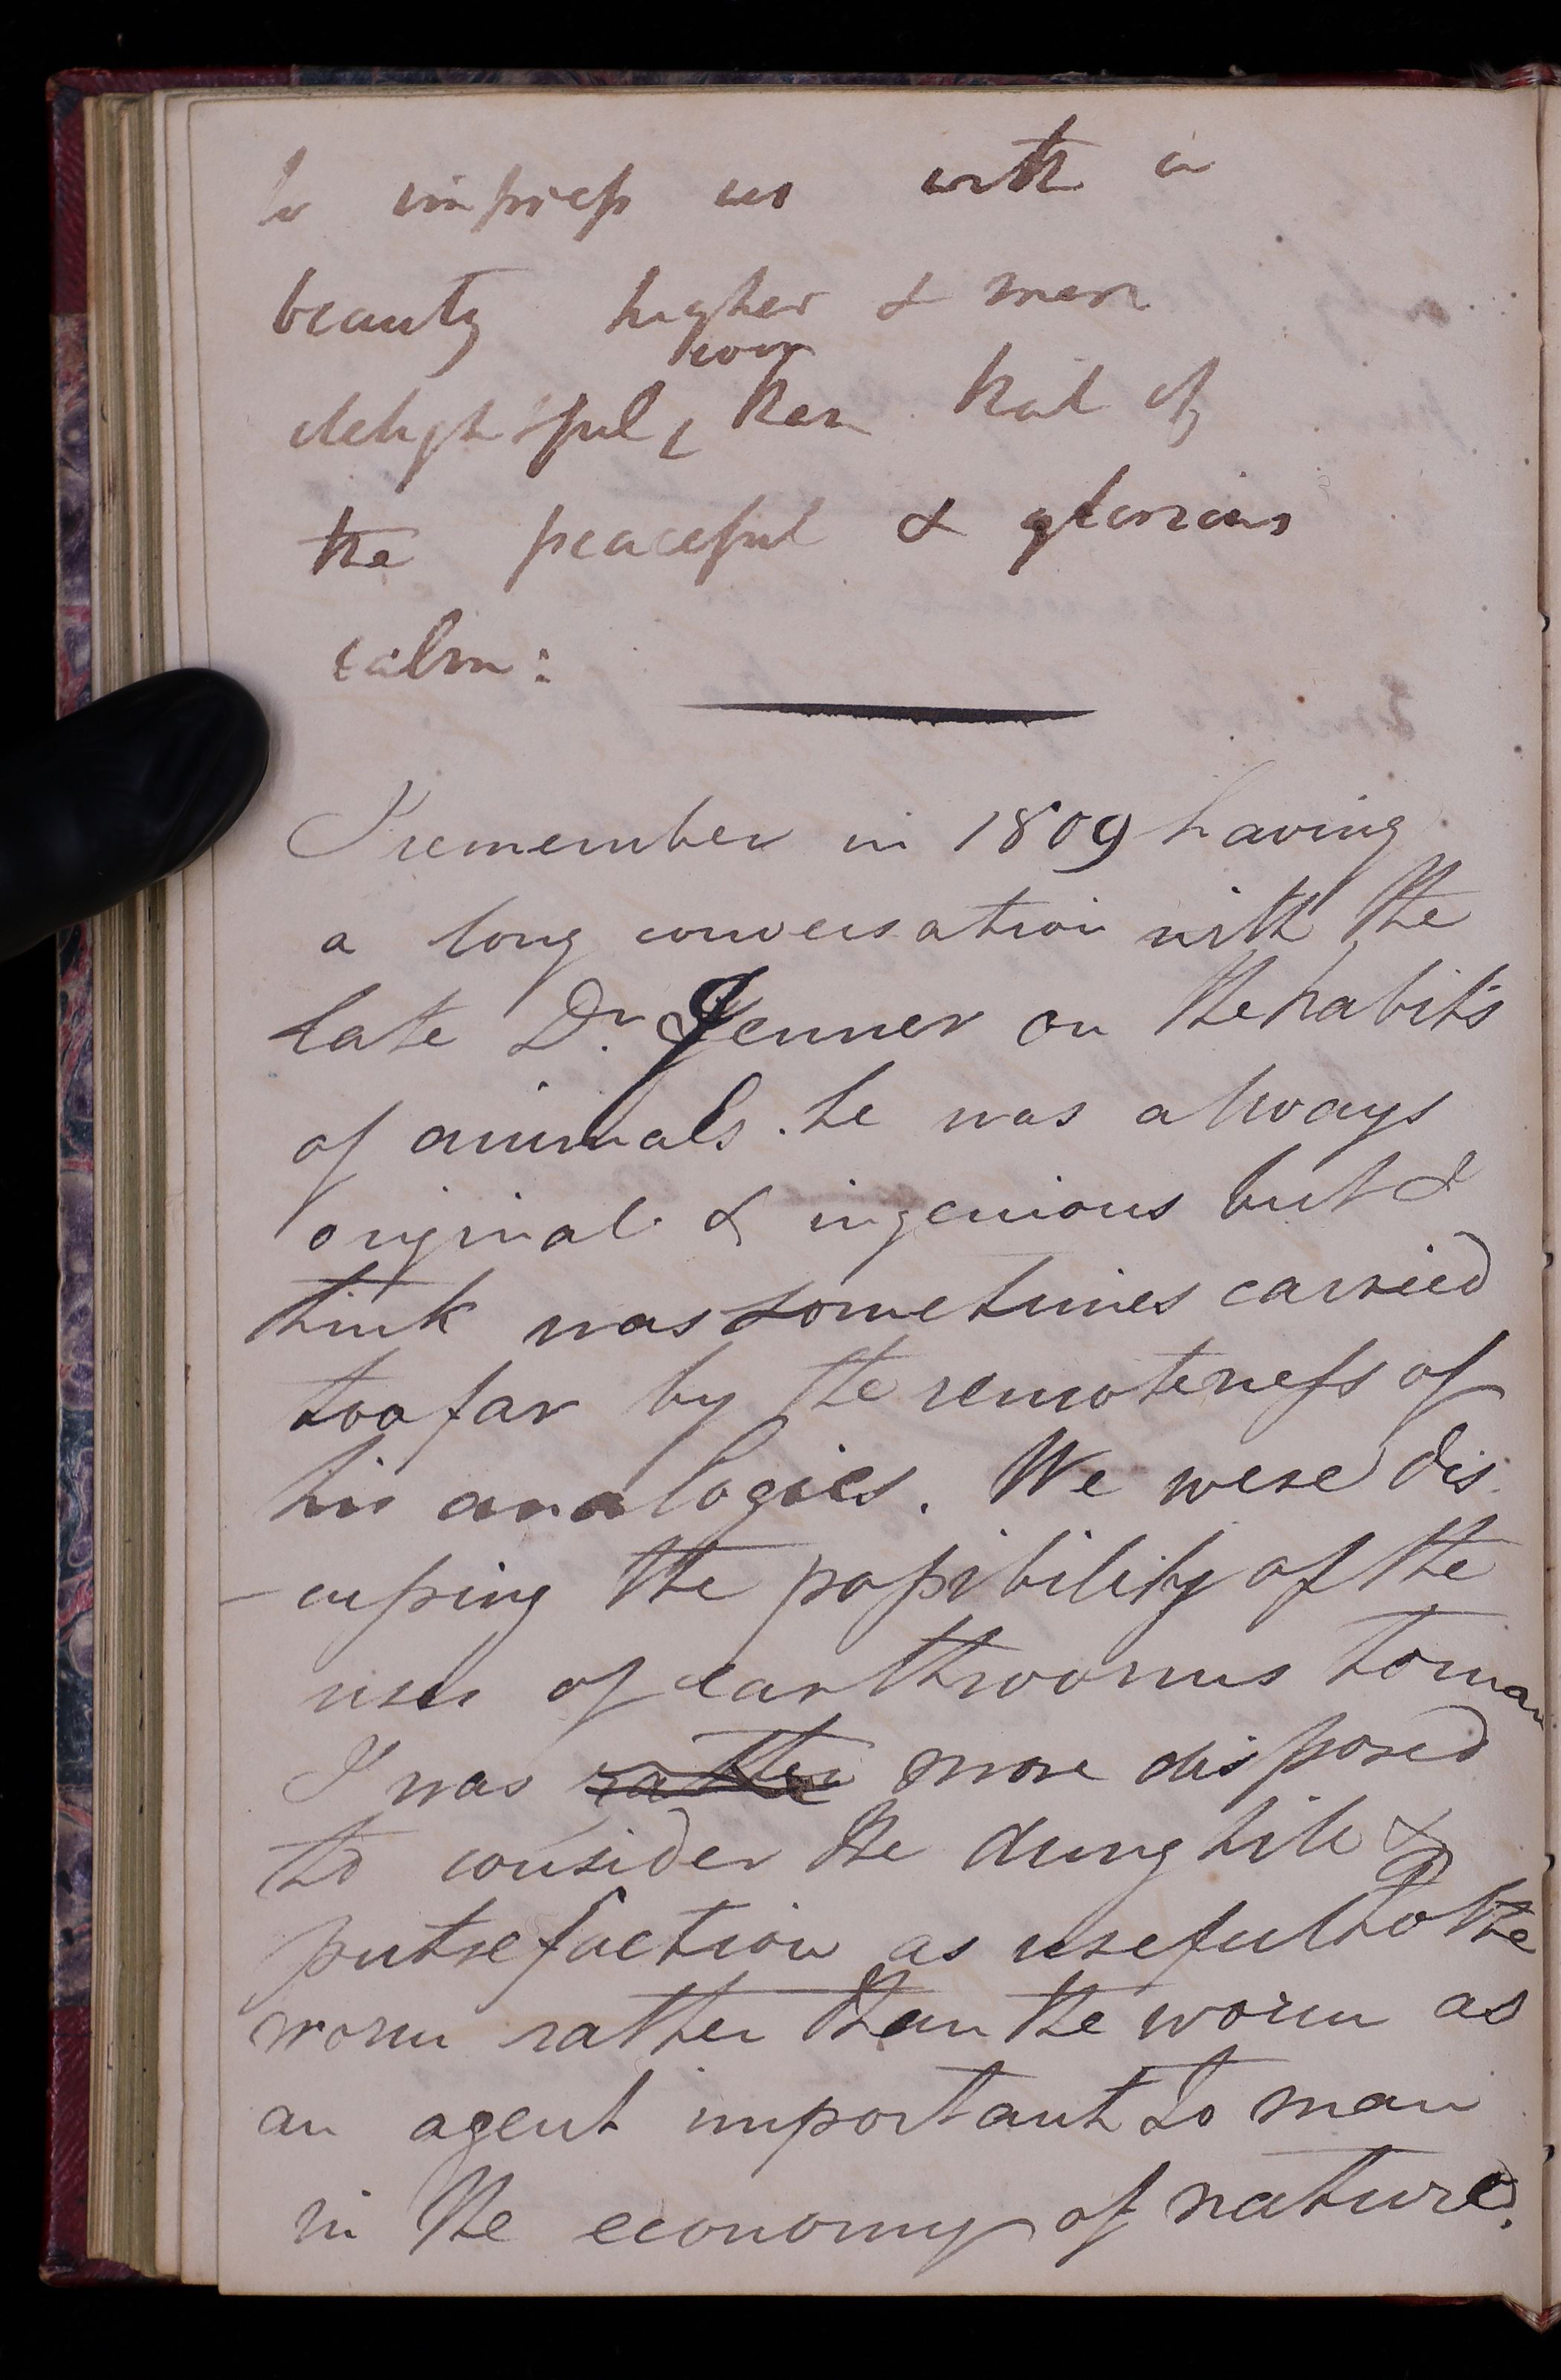 to impress us with a
beauty higher & more
even
delightful, than that of
the peaceful & glorious
calm:
I remember in 1809 having
a long conversation with the
late Dr. Jenner on the habits
of animals. he was always
original & ingenious but I
think was sometimes carried
too far by the remoteness of
his analogies. We were dis
-cussing the possibility of the
uses of earthworms to man
I was rather more disposed
to consider the dung hill &
putrefaction as useful to the
worm rather than the worm as
an agent important to man
in the economy of nature.